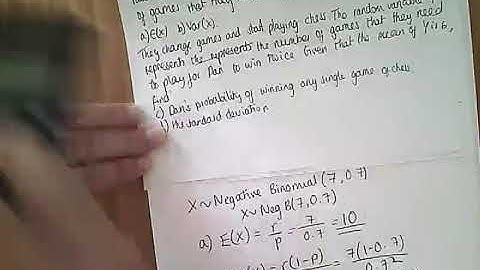 of games that may
a) E(X) b) Var(X).
They change games and start playing chess. The random variable Y
represents the represents the number of games that they need
to play for Dan to win twice. Given that the mean of Y is 6,
find
c) Dan's probability of winning any single game of chess
standard deviation
X ~ Negative Binomial (7, 0.7)
X ~ NegB(7, 0.7)
a) E(X) = r/p = 7/0.7 = 10
= r(1-p) = 7(1-0.7)
0.7²